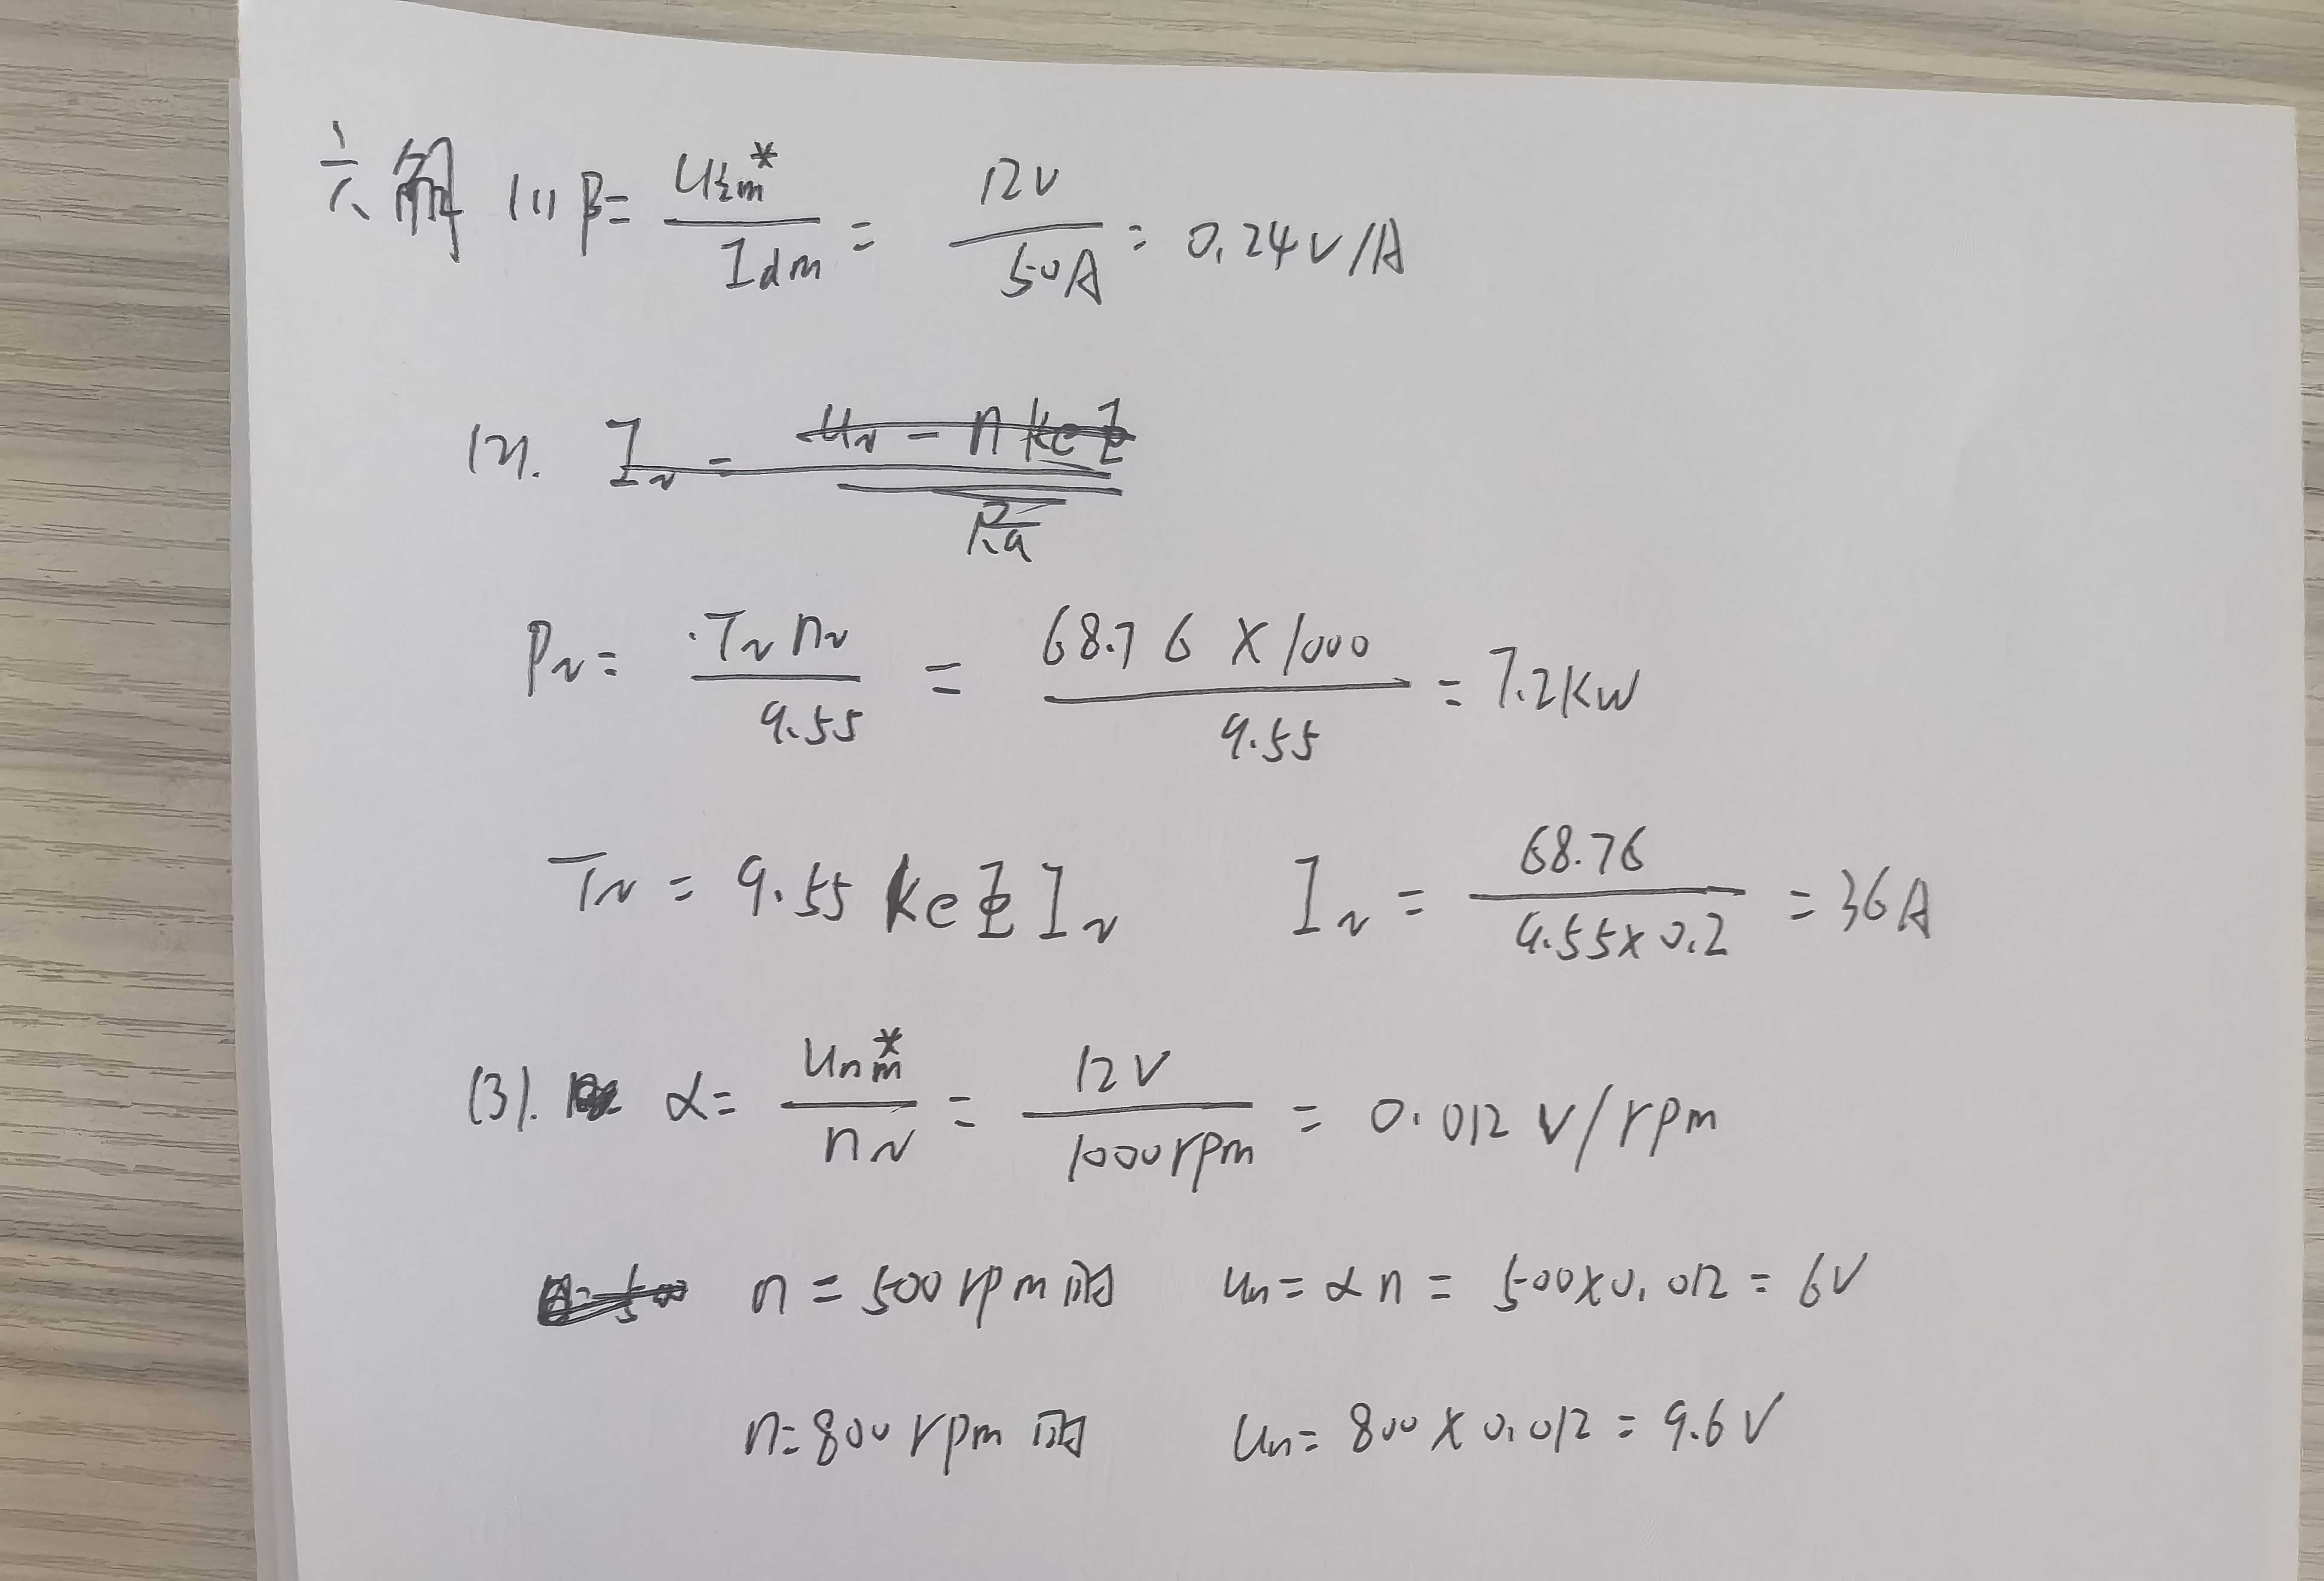 六 解 (1) β = Uim* / Idm = 12V / 50A = 0.24V/A
(2). IN = UN - n KeΦ / Ra
PN = TN nN / 9.55 = 68.76 × 1000 / 9.55 = 7.2KW
TN = 9.55 KeΦ IN IN = 68.76 / 9.55×0.2 = 36A
(3). α = Unm* / nN = 12V / 1000rpm = 0.012 V/rpm
n = 500 rpm 时 Un = αn = 500×0.012 = 6V
n = 800 rpm 时 Un = 800×0.012 = 9.6V